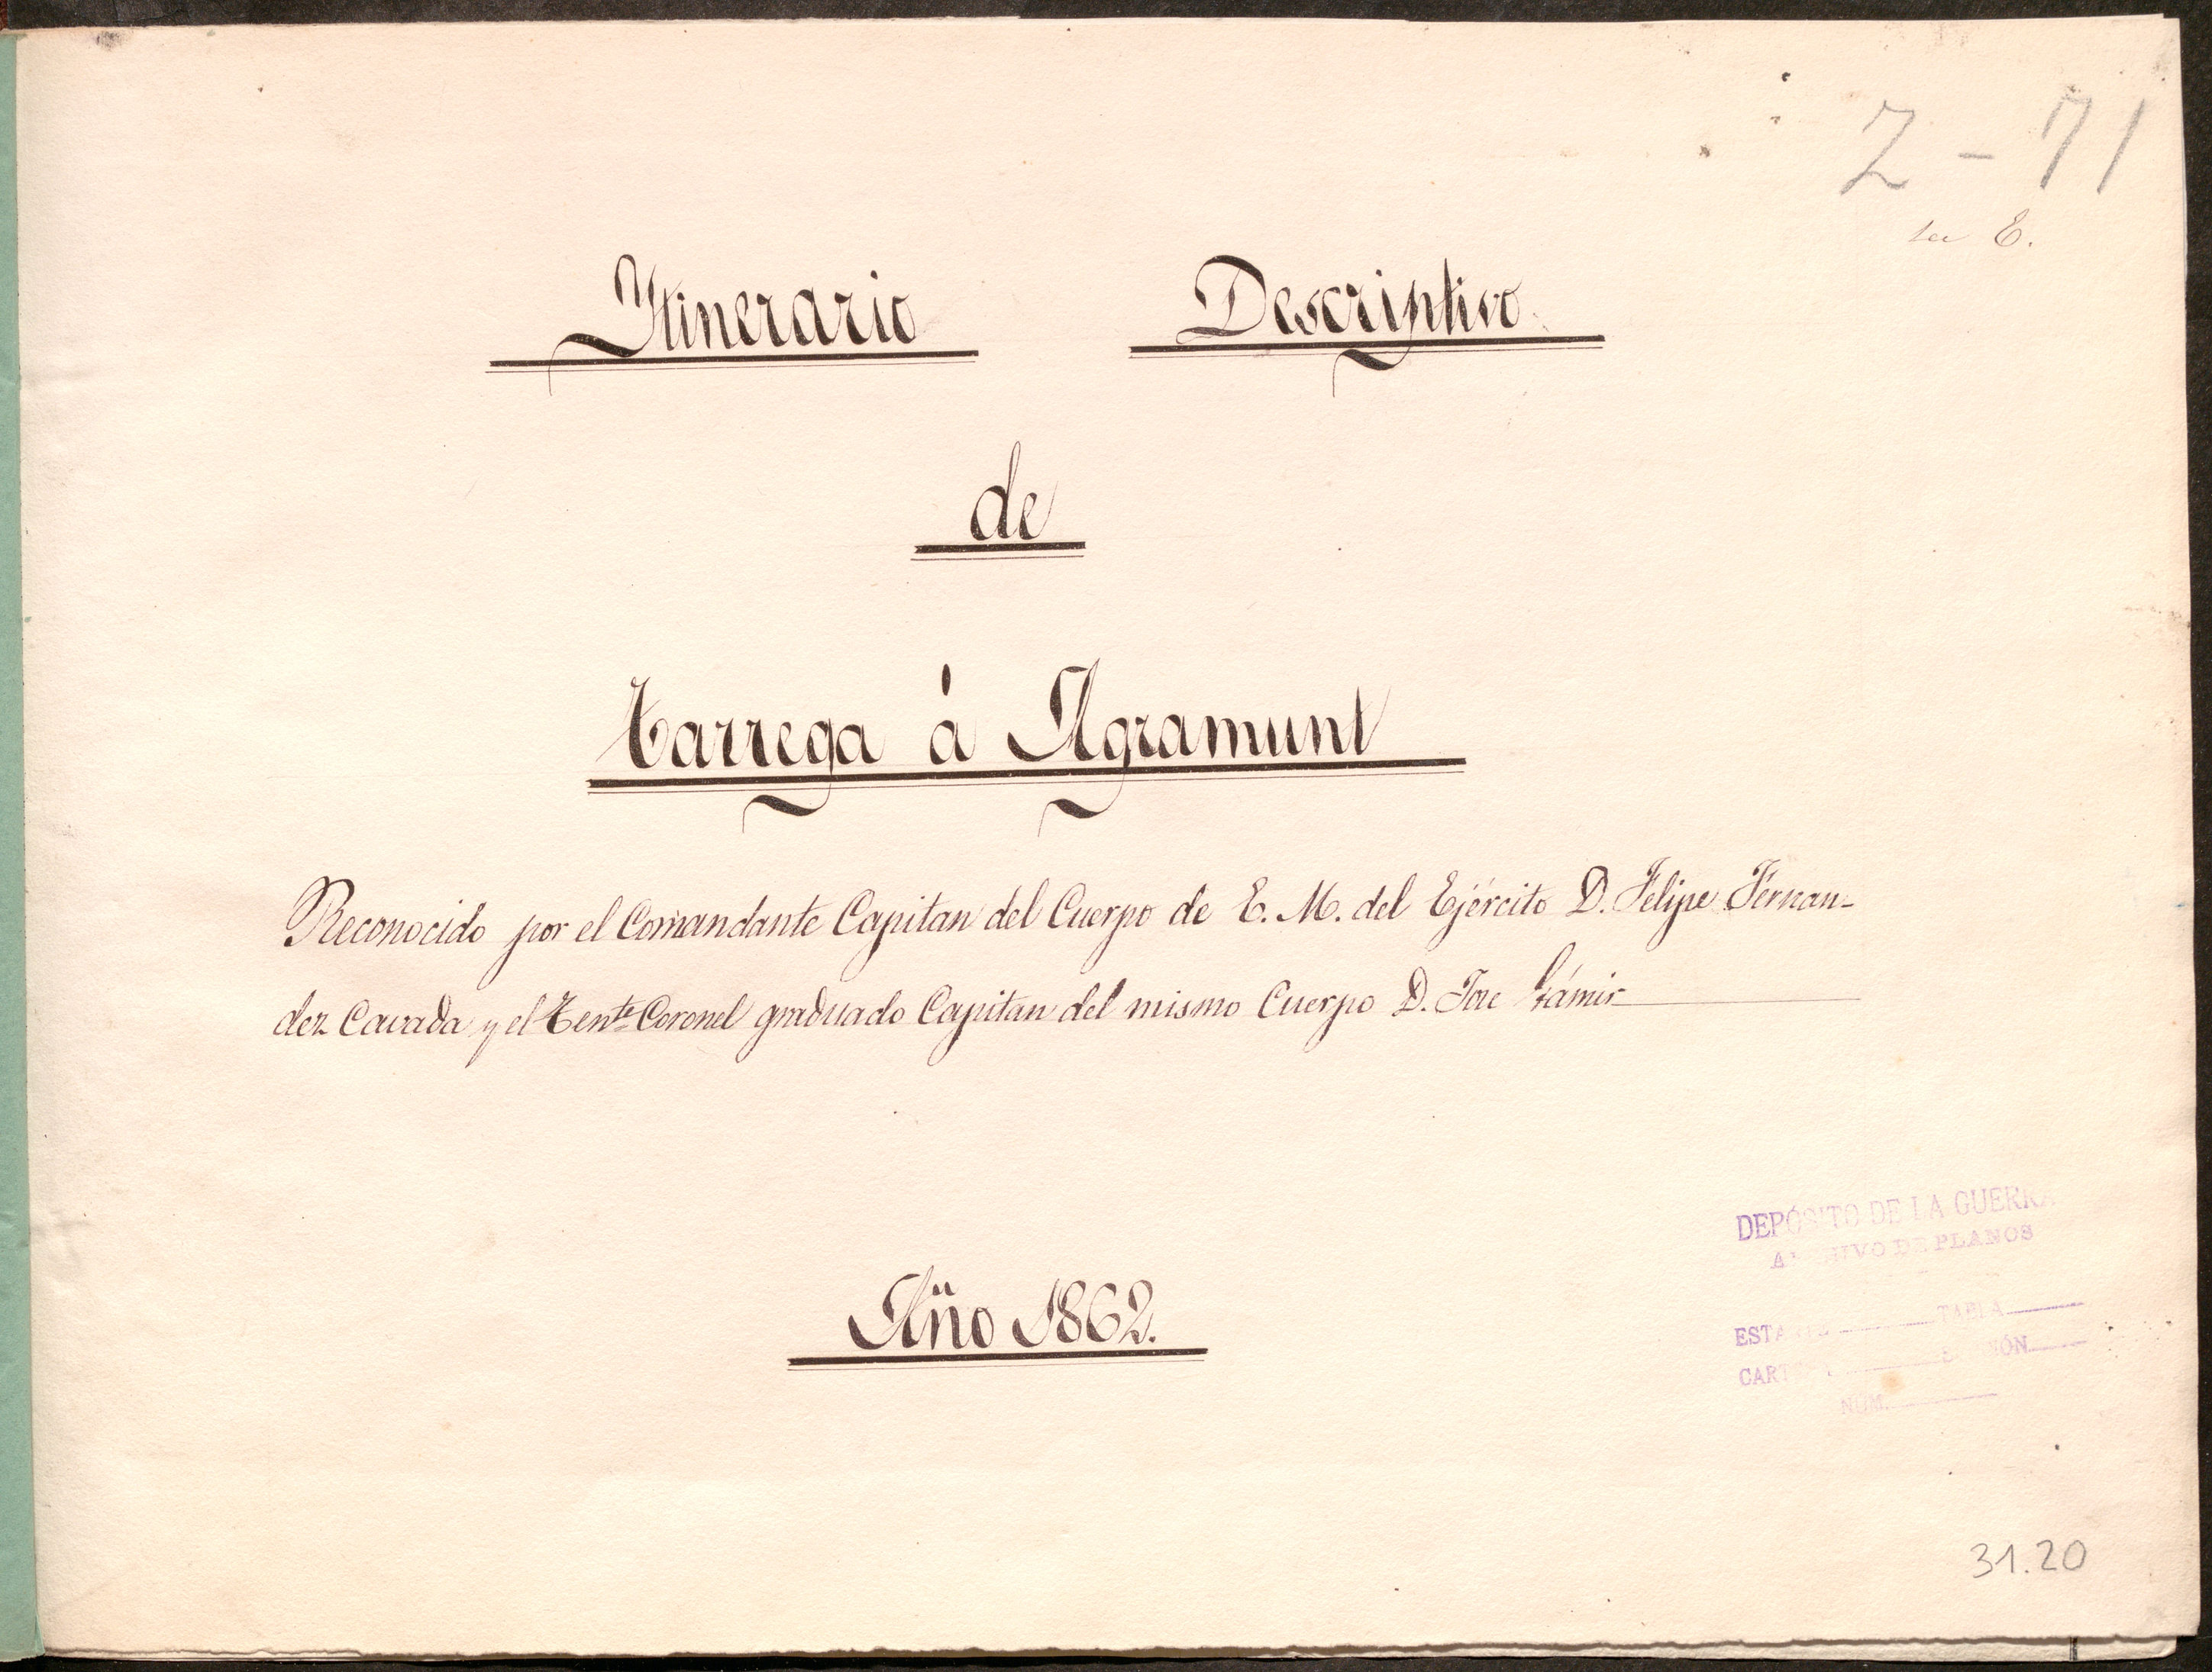 2-71
E.
Itinerario Descriptivo.
de
Tarrega á Agramunt
Reconocido por el Comandante Capitan del Cuerpo de E. M. del Ejército D. Felipe Fernan-
dez Cavada y el Tente Coronel graduado Capitan del mismo Cuerpo D. José Gámir
Año 1862.
DEPÓSITO DE LA GUERRA
ARCHIVO DE PLANOS
ESTANTE TABLA
CARTERA
NÚM.
31.20